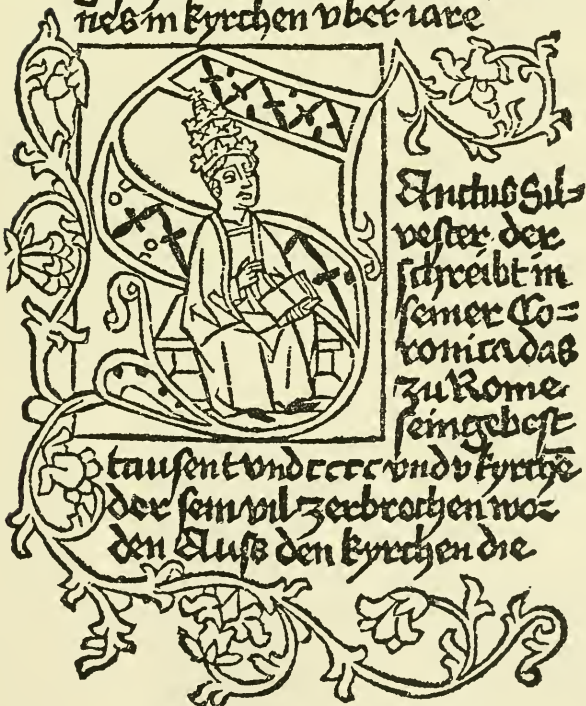 nes in kyrchen vber iare
SAnctus Sil=
vester der
schreibt in
seiner Co=
ronica das
zu Rome
sein gebest
tausent vnd cccc vnd v kyrchē
der sein vil zerbrochen wor
den Auß den kyrchen die